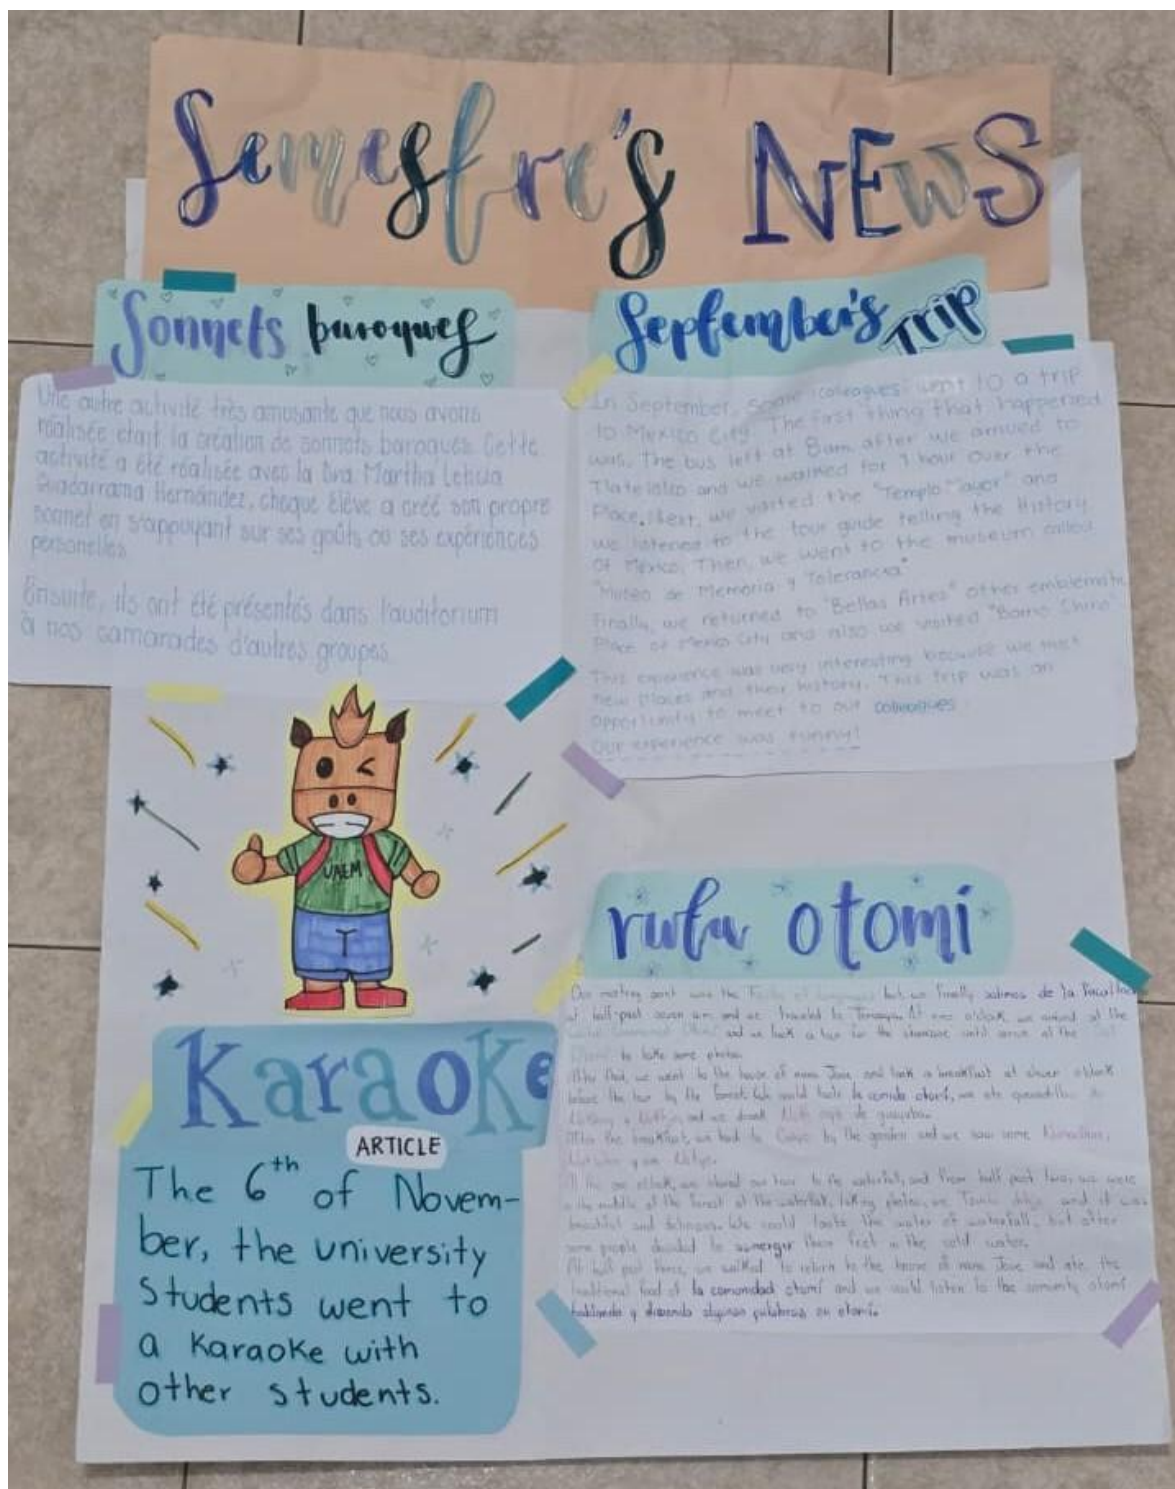 Semestre's NEWS
Sonnets baroques
Une autre activité très amusante que nous avons
réalisée était la création de sonnets baroques. Cette
activité a été réalisée avec la Dra. Martha Leticia
Guadarrama Hernández, chaque élève a créé son propre
sonnet en s'appuyant sur ses goûts ou ses expériences
personelles.
Ensuite, ils ont été présentés dans l'auditorium
à nos camarades d'autres groupes.
September's TRIP
In September, some colleagues went to a trip
to Mexico City. The first thing that happened
was. The bus left at 8am after we arrived to
Tlatelolco and we walked for 1 hour over the
Place. Next, we visited the "Templo Mayor" and
we listened to the tour guide telling the History
Of Mexico. Then, we went to the museum called
"Museo de Memoria y Tolerancia"
Finally, we returned to "Bellas Artes" other emblematic
Place of Mexico City and also we visited "Barrio Chino"
This experience was very interesting because we met
new places and their history. This trip was an
opportunity to meet to our colleagues.
Our experience was funny!
UAEM
Karaoke
ARTICLE
The 6th of Novem-
ber, the university
Students went to
a Karaoke with
other students.
ruta otomí
Our meeting point was the Faculty of Languages but we finally salimos de la Facultad
at half-past seven am and we traveled to Temoaya. At nine o'clock we arrived at the
and we took a tour for the until arrive at the
to take some photos.
After that, we went to the house of nana Jose and took a breakfast at eleven o'clock
before the tour by the forest. We could taste la comida otomí, we ate quesadillas de
and we drank de guayaba.
After the breakfast, we had to by the garden and we saw some
At the one o'clock, we started our tour to the waterfall, and from half past two, we were
in the middle of the forest at the waterfall, taking photos, and it was
beautiful and delicious. We could taste the water of waterfall, but other
some people decided to sumerger their feet in the cold water.
At half past three, we walked to return to the house of nana Jose and ate the
traditional food of la comunidad otomí and we could listen to the comunity otomí
hablando y diciendo algunas palabras en otomí.